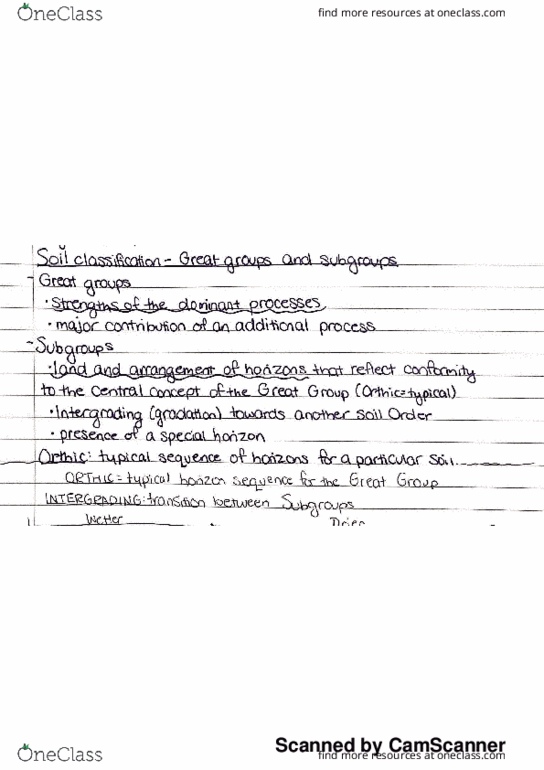 OneClass
find more resources at oneclass.com
Soil classification - Great groups and subgroups
- Great groups
• Strengths of the dominant processes
• major contribution of an additional process
- Subgroups
• land and arrangement of horizons that reflect conformity
to the central concept of the Great Group (Orthic=typical)
• Intergrading (gradation) towards another Soil Order
• presence of a special horizon
Orthic: typical sequence of horizons for a particular soil.
ORTHIC = typical horizon sequence for the Great Group
INTERGRADING: transition between Subgroups
Wetter Drier
Scanned by CamScanner
OneClass
find more resources at oneclass.com